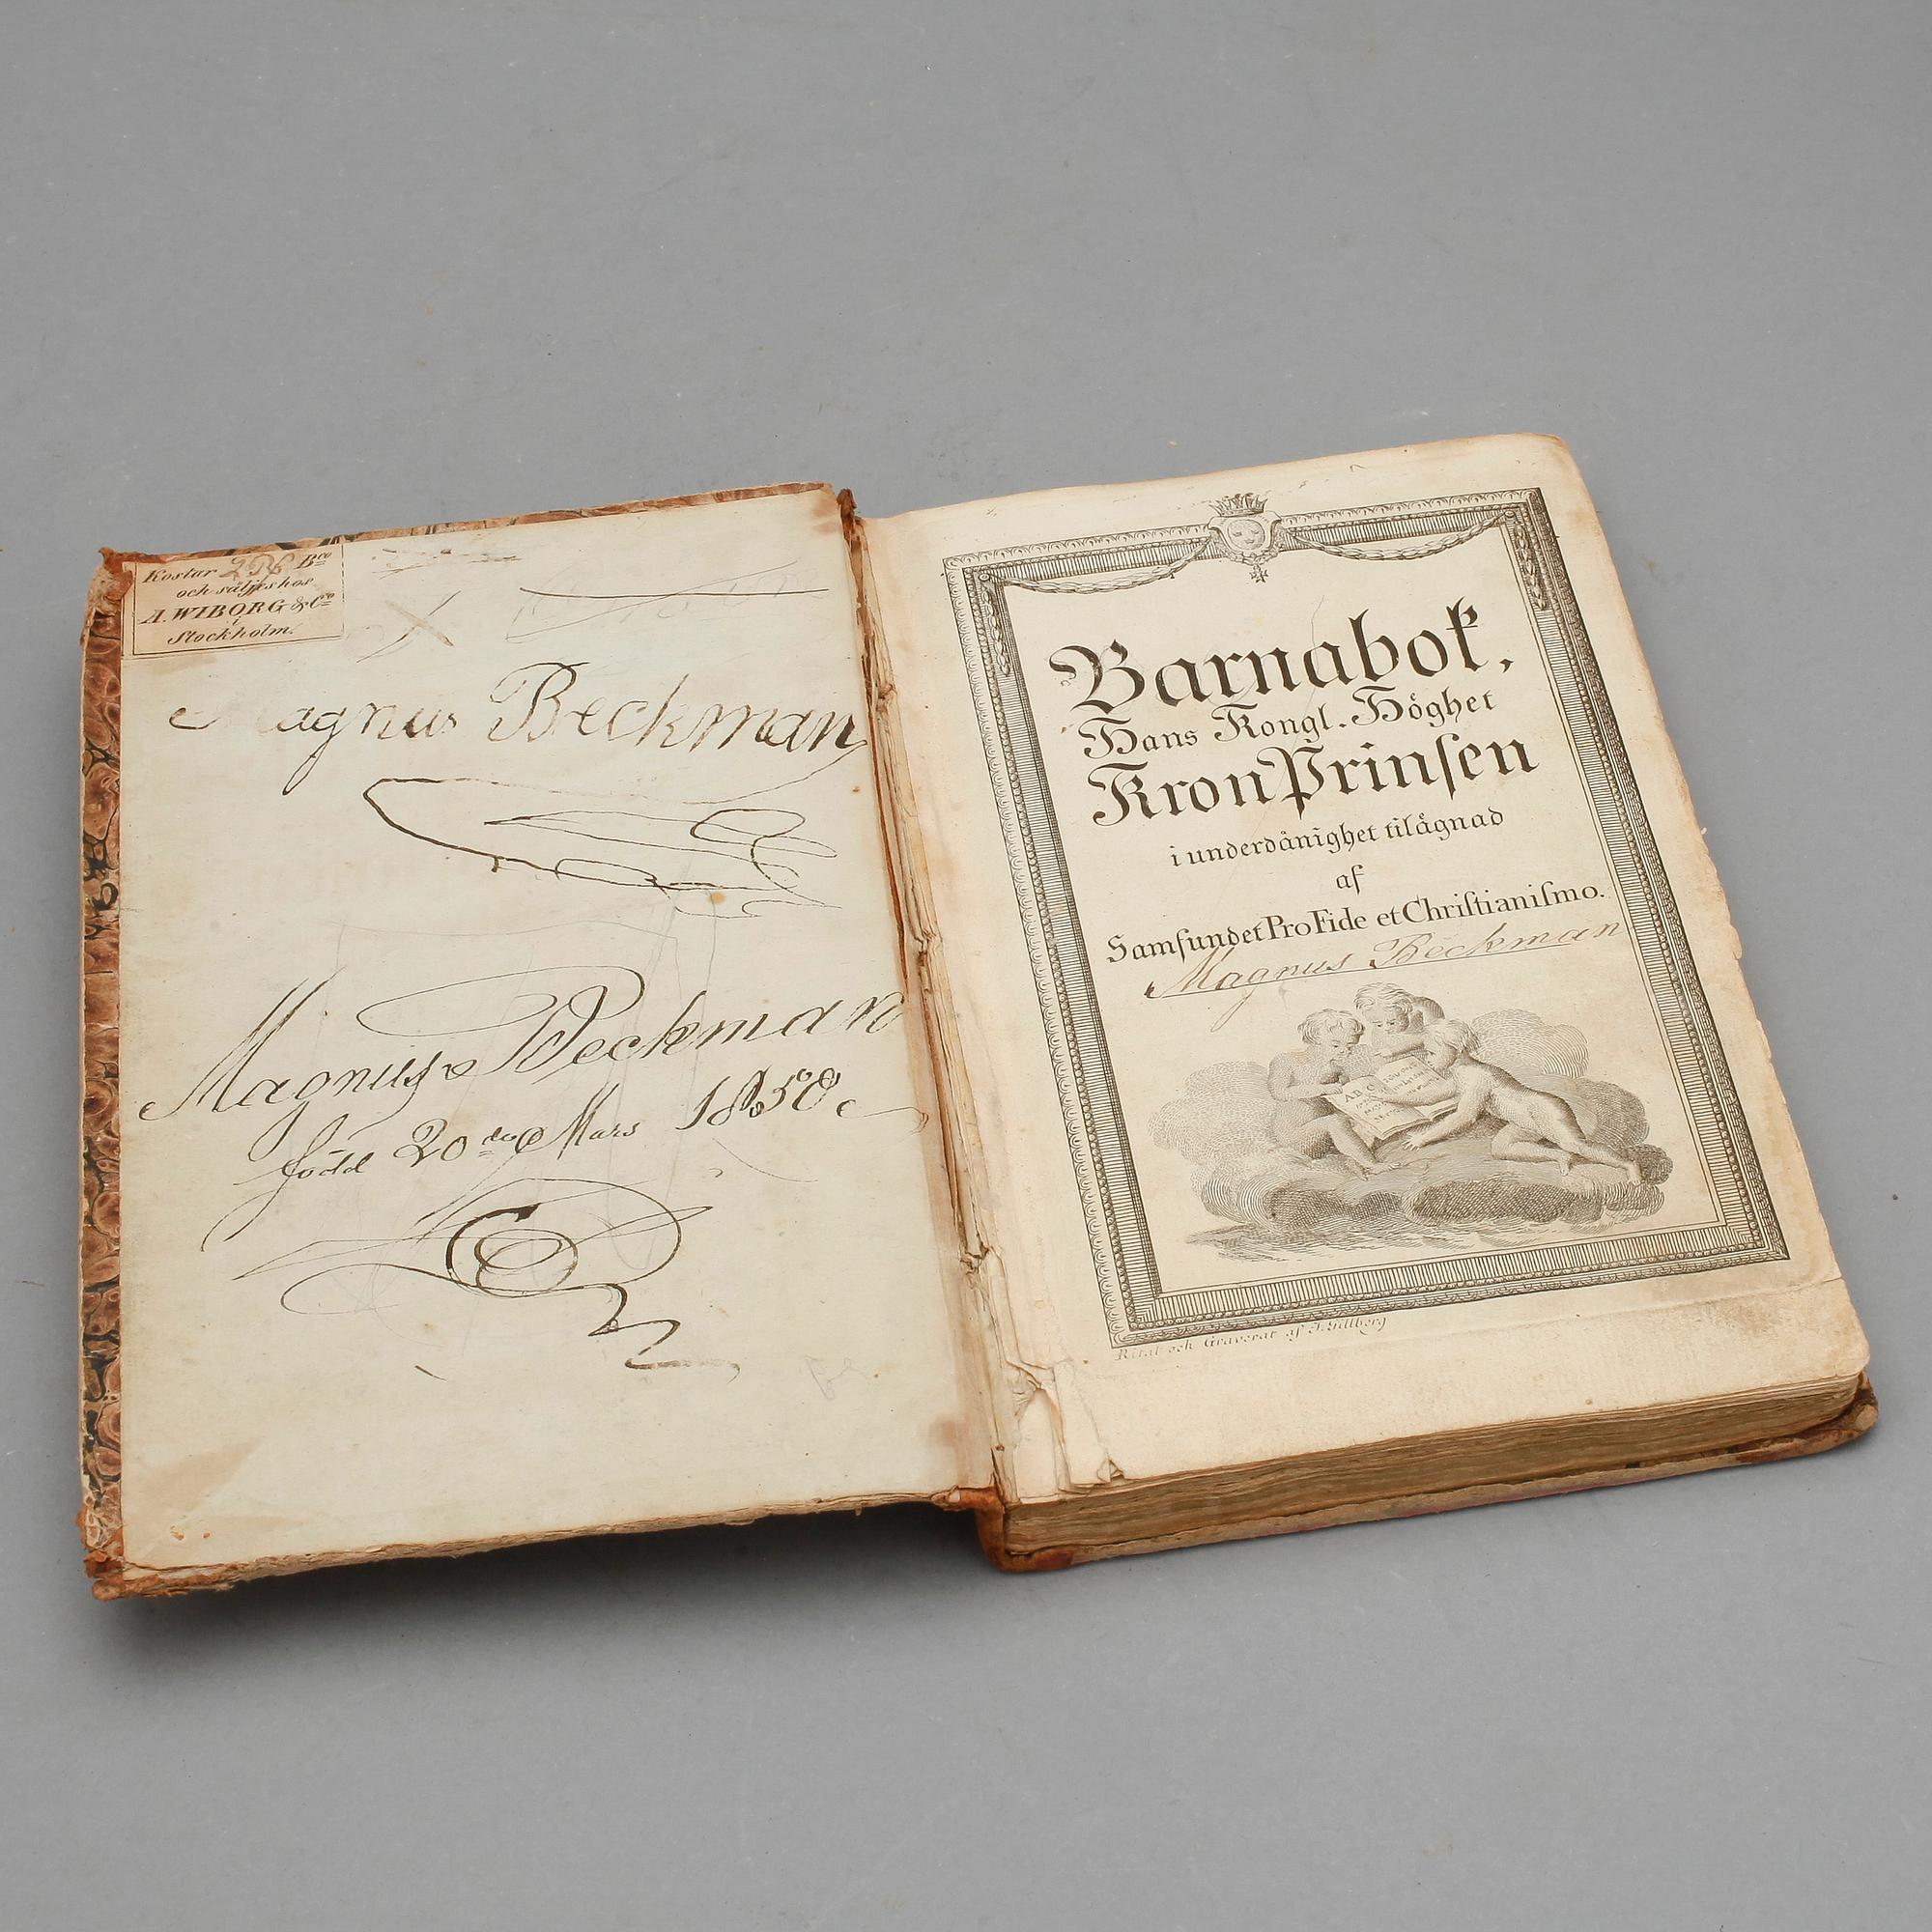 Kostar Bco
och säljes hos
A. WIBORG & Co
i
Stockholm.
Magnus Beckman
Magnus Beckman
född 20de Mars
Barnabok,
Hans Kongl. Höghet
KronPrinſen
i underdånighet tilägnad
af
Samfundet Pro Fide et Chriſtianiſmo.
Magnus Beckman
ABC
Ritat och Graverat af J. Gillberg